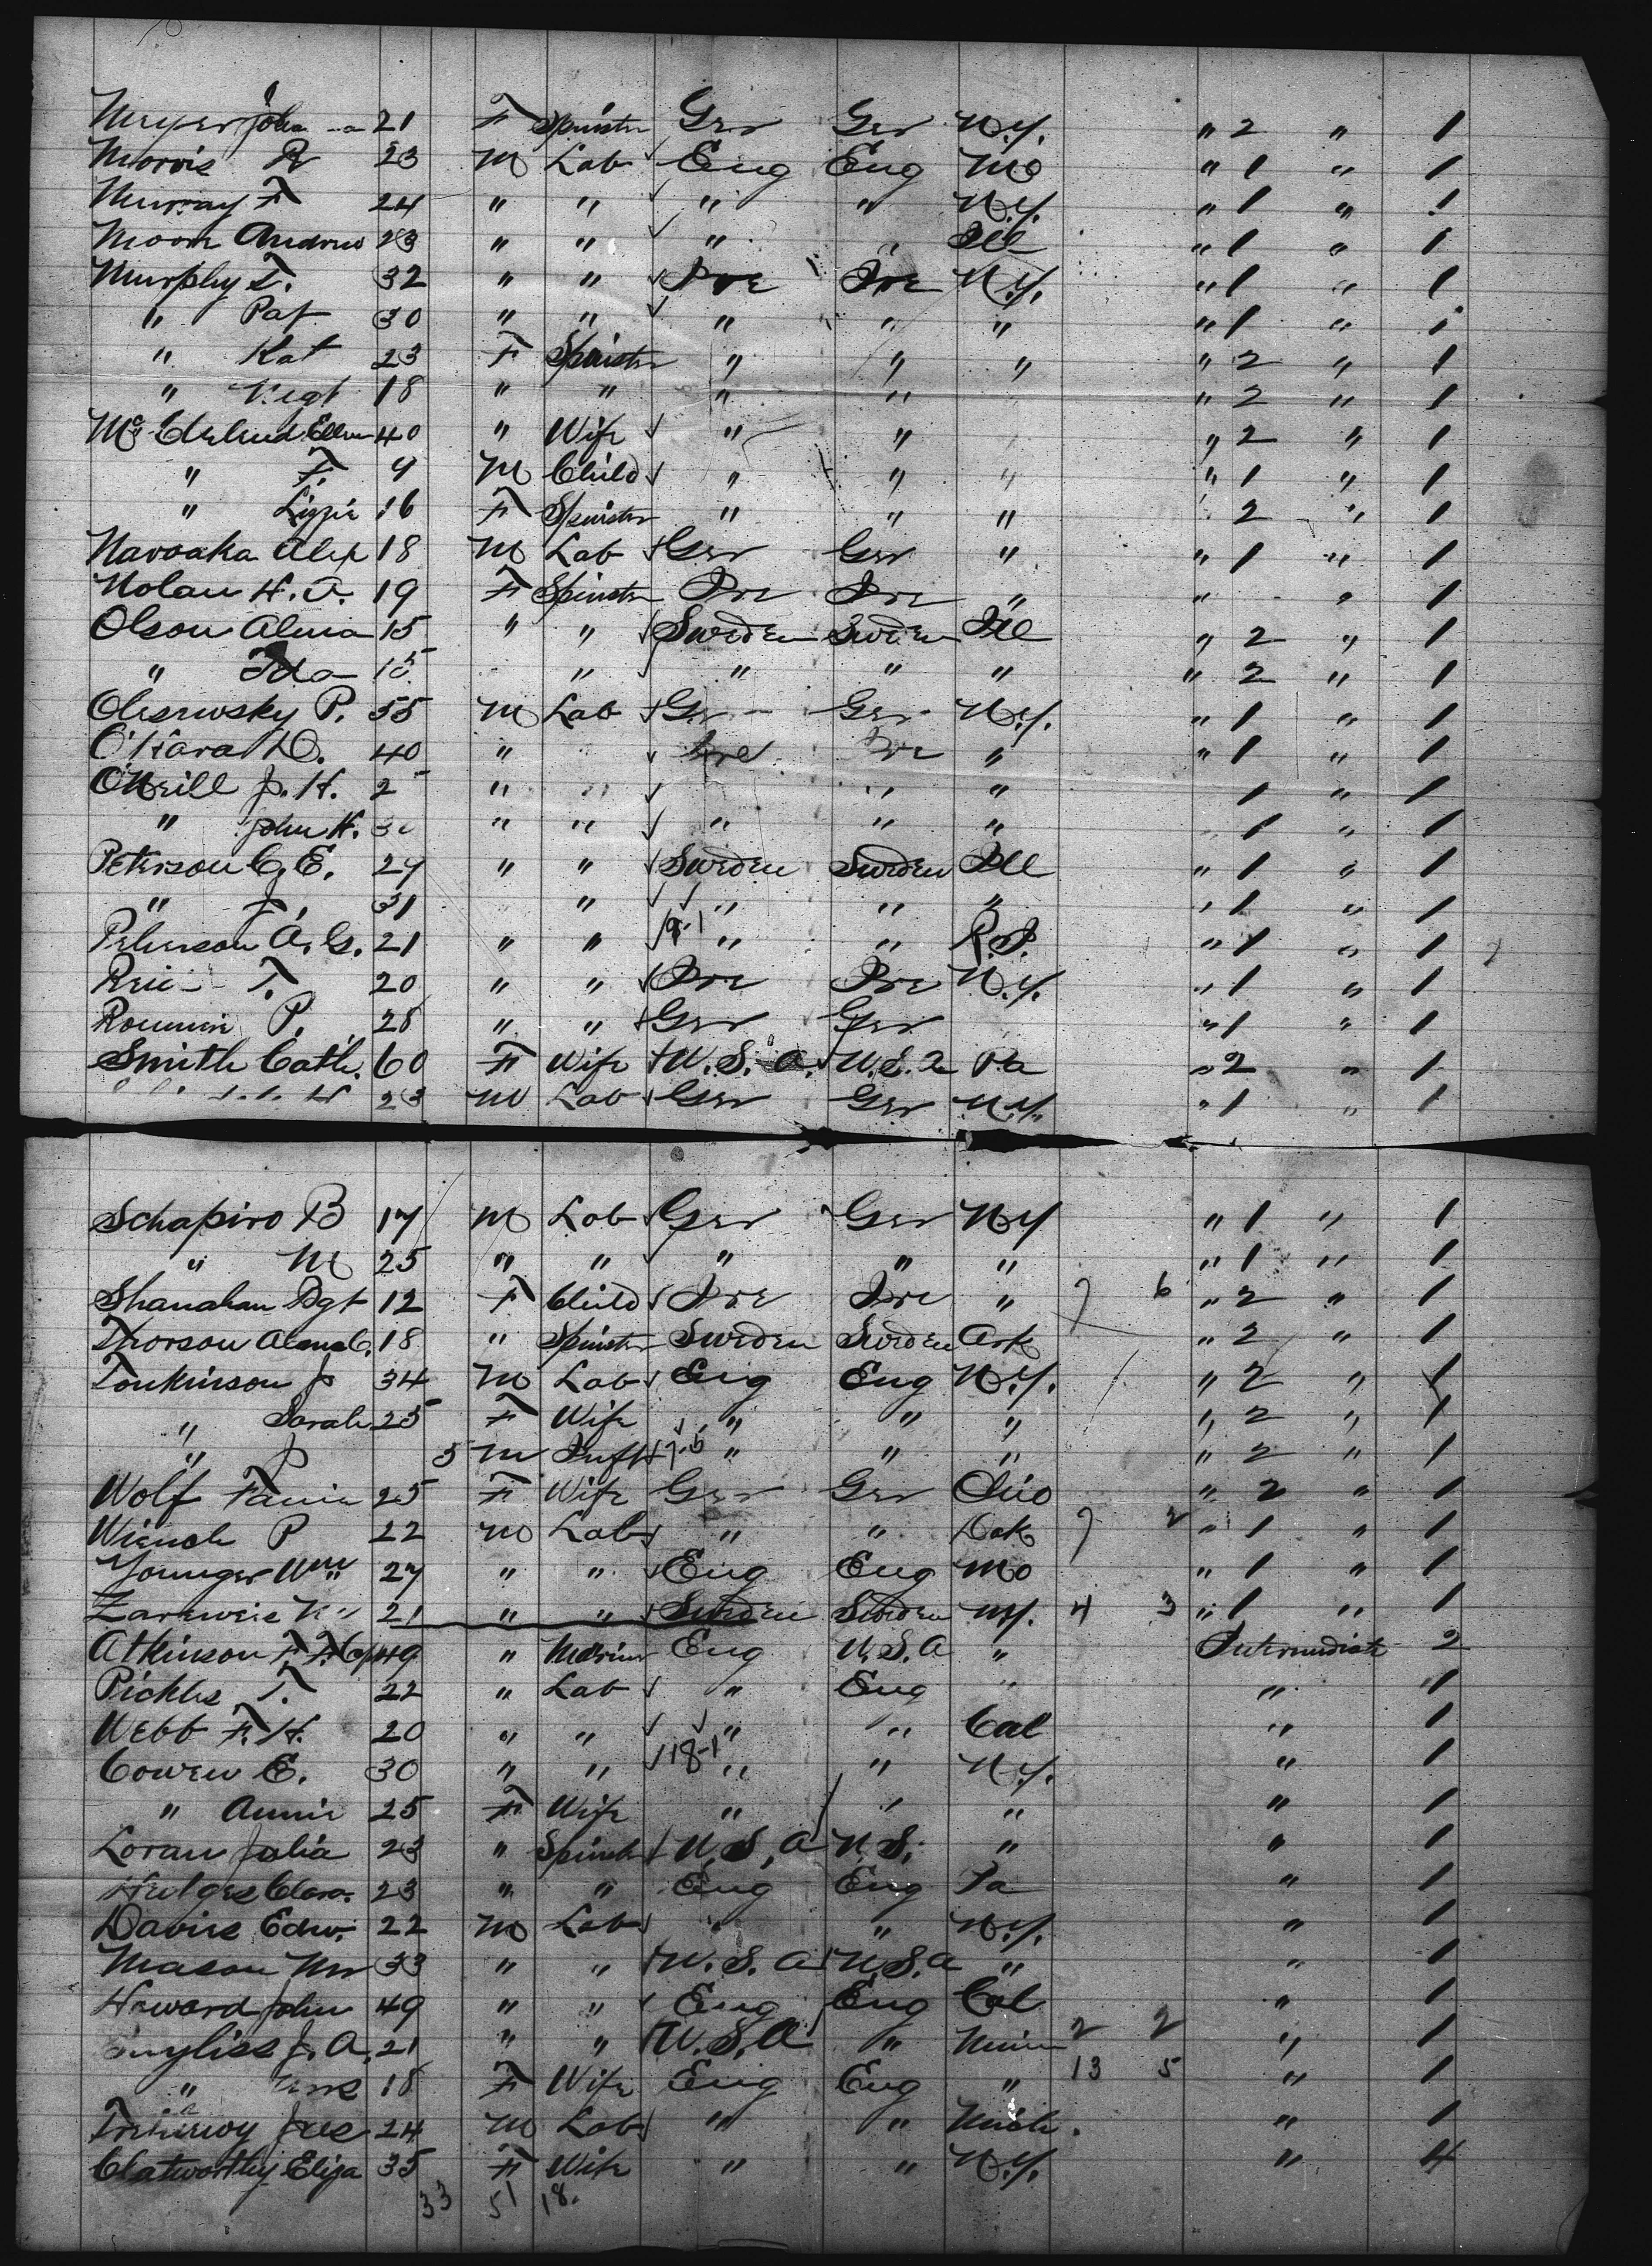 Meyer Joha 21 F Spinster Ger Ger N.Y. " 2 " 1
Morris R 23 M Lab Eng Eng Mo " 1 " 1
Murray F 24 " " " " N.Y. " 1 " 1
Moore Andrew 23 " " " " Ill " 1 " 1
Murphy T. 32 " " Ire Ire N.Y. " 1 " 1
" Pat 30 " " " " " " 1 " 1
" Kat 23 F Spinster " " " " 2 " 1
" 18 " " " " " 2 " 1
Ellen 40 " Wife " " " 2 " 1
" F. 9 M Child " " " " 1 " 1
" Lizzie 16 F Spinster " " " 2 " 1
Alex 18 M Lab Ger Ger " " 1 " 1
Nolan H. A. 19 F Spinster Ire Ire " " " 1
Olson Alma 15 " " Sweden Sweden Ill " 2 " 1
" Ida " " " " " 2 " 1
P. 55 M Lab Ger Ger N.Y. " 1 " 1
O'Hara D. 40 " Ire Ire " " 1 " 1
O'Neill J. H. 2 " " " " 1 " 1
" John H. " " " " " 1 " 1
Peterson C. E. 29 " " Sweden Sweden Ill " 1 " 1
" J. 31 " " " " " 1 " 1
Peherson A. G. 21 " " 9-1 " " R.I. " 1 " 1
T. 20 " " Ire Ire N.Y. " 1 " 1
P. 28 " " Ger Ger " 1 " 1
Smith Cath. 60 F Wife U.S.A. U.S.A Pa " 2 " 1
23 M Lab Ger Ger N.Y. " 1 " 1
Schapiro B 17 M Lab Ger Ger NY " 1 " 1
" M 25 " " " " " " 1 " 1
Shanahan Bgt 12 F Child Ire Ire " 7 6 " 2 " 1
Thorson Alma C. 18 " Spinster Sweden Sweden Ark " 2 " 1
Tonkinson J 34 M Lab Eng Eng N.Y. " 2 " 1
" Sarah 25 F Wife " " " " 2 " 1
" J 5 M Inft " " " " 2 " 1
Wolf Fannie 25 F Wife Ger Ger Ohio " 2 " 1
P 22 M Lab " " Dak 7 2 " 1 " 1
Younger Wm 27 " " Eng Eng Mo " 1 " 1
21 " " Sweden Sweden NY. 4 3 " 1 " 1
Atkinson F. F. Cap 49 " Mariner Eng U.S.A " Intermediate 2
Pickles T. 22 " Lab " Eng " " 1
Webb F. H. 20 " " " " Cal " 1
Cowen E. 30 " " 18-1 " " N.Y. " 1
" Annie 25 F Wife " " " " 1
Loran Julia 23 " Spinster U.S.A U.S. " " 1
Clara 23 " " Eng Eng Pa " 1
Davies Edw. 22 M Lab " " N.Y. " 1
Mason Mr 33 " " U.S.A U.S.A " " 1
Howard John 49 " " Eng Eng Cal " 1
J. A. 21 " " U.S.A " Minn 2 2 " 1
" Mrs 18 F Wife Eng Eng " 13 5 " 1
24 M Lab " " Mich. " 1
Clatworthy Eliza 35 F Wife " " N.Y. " 4
33 51 18.